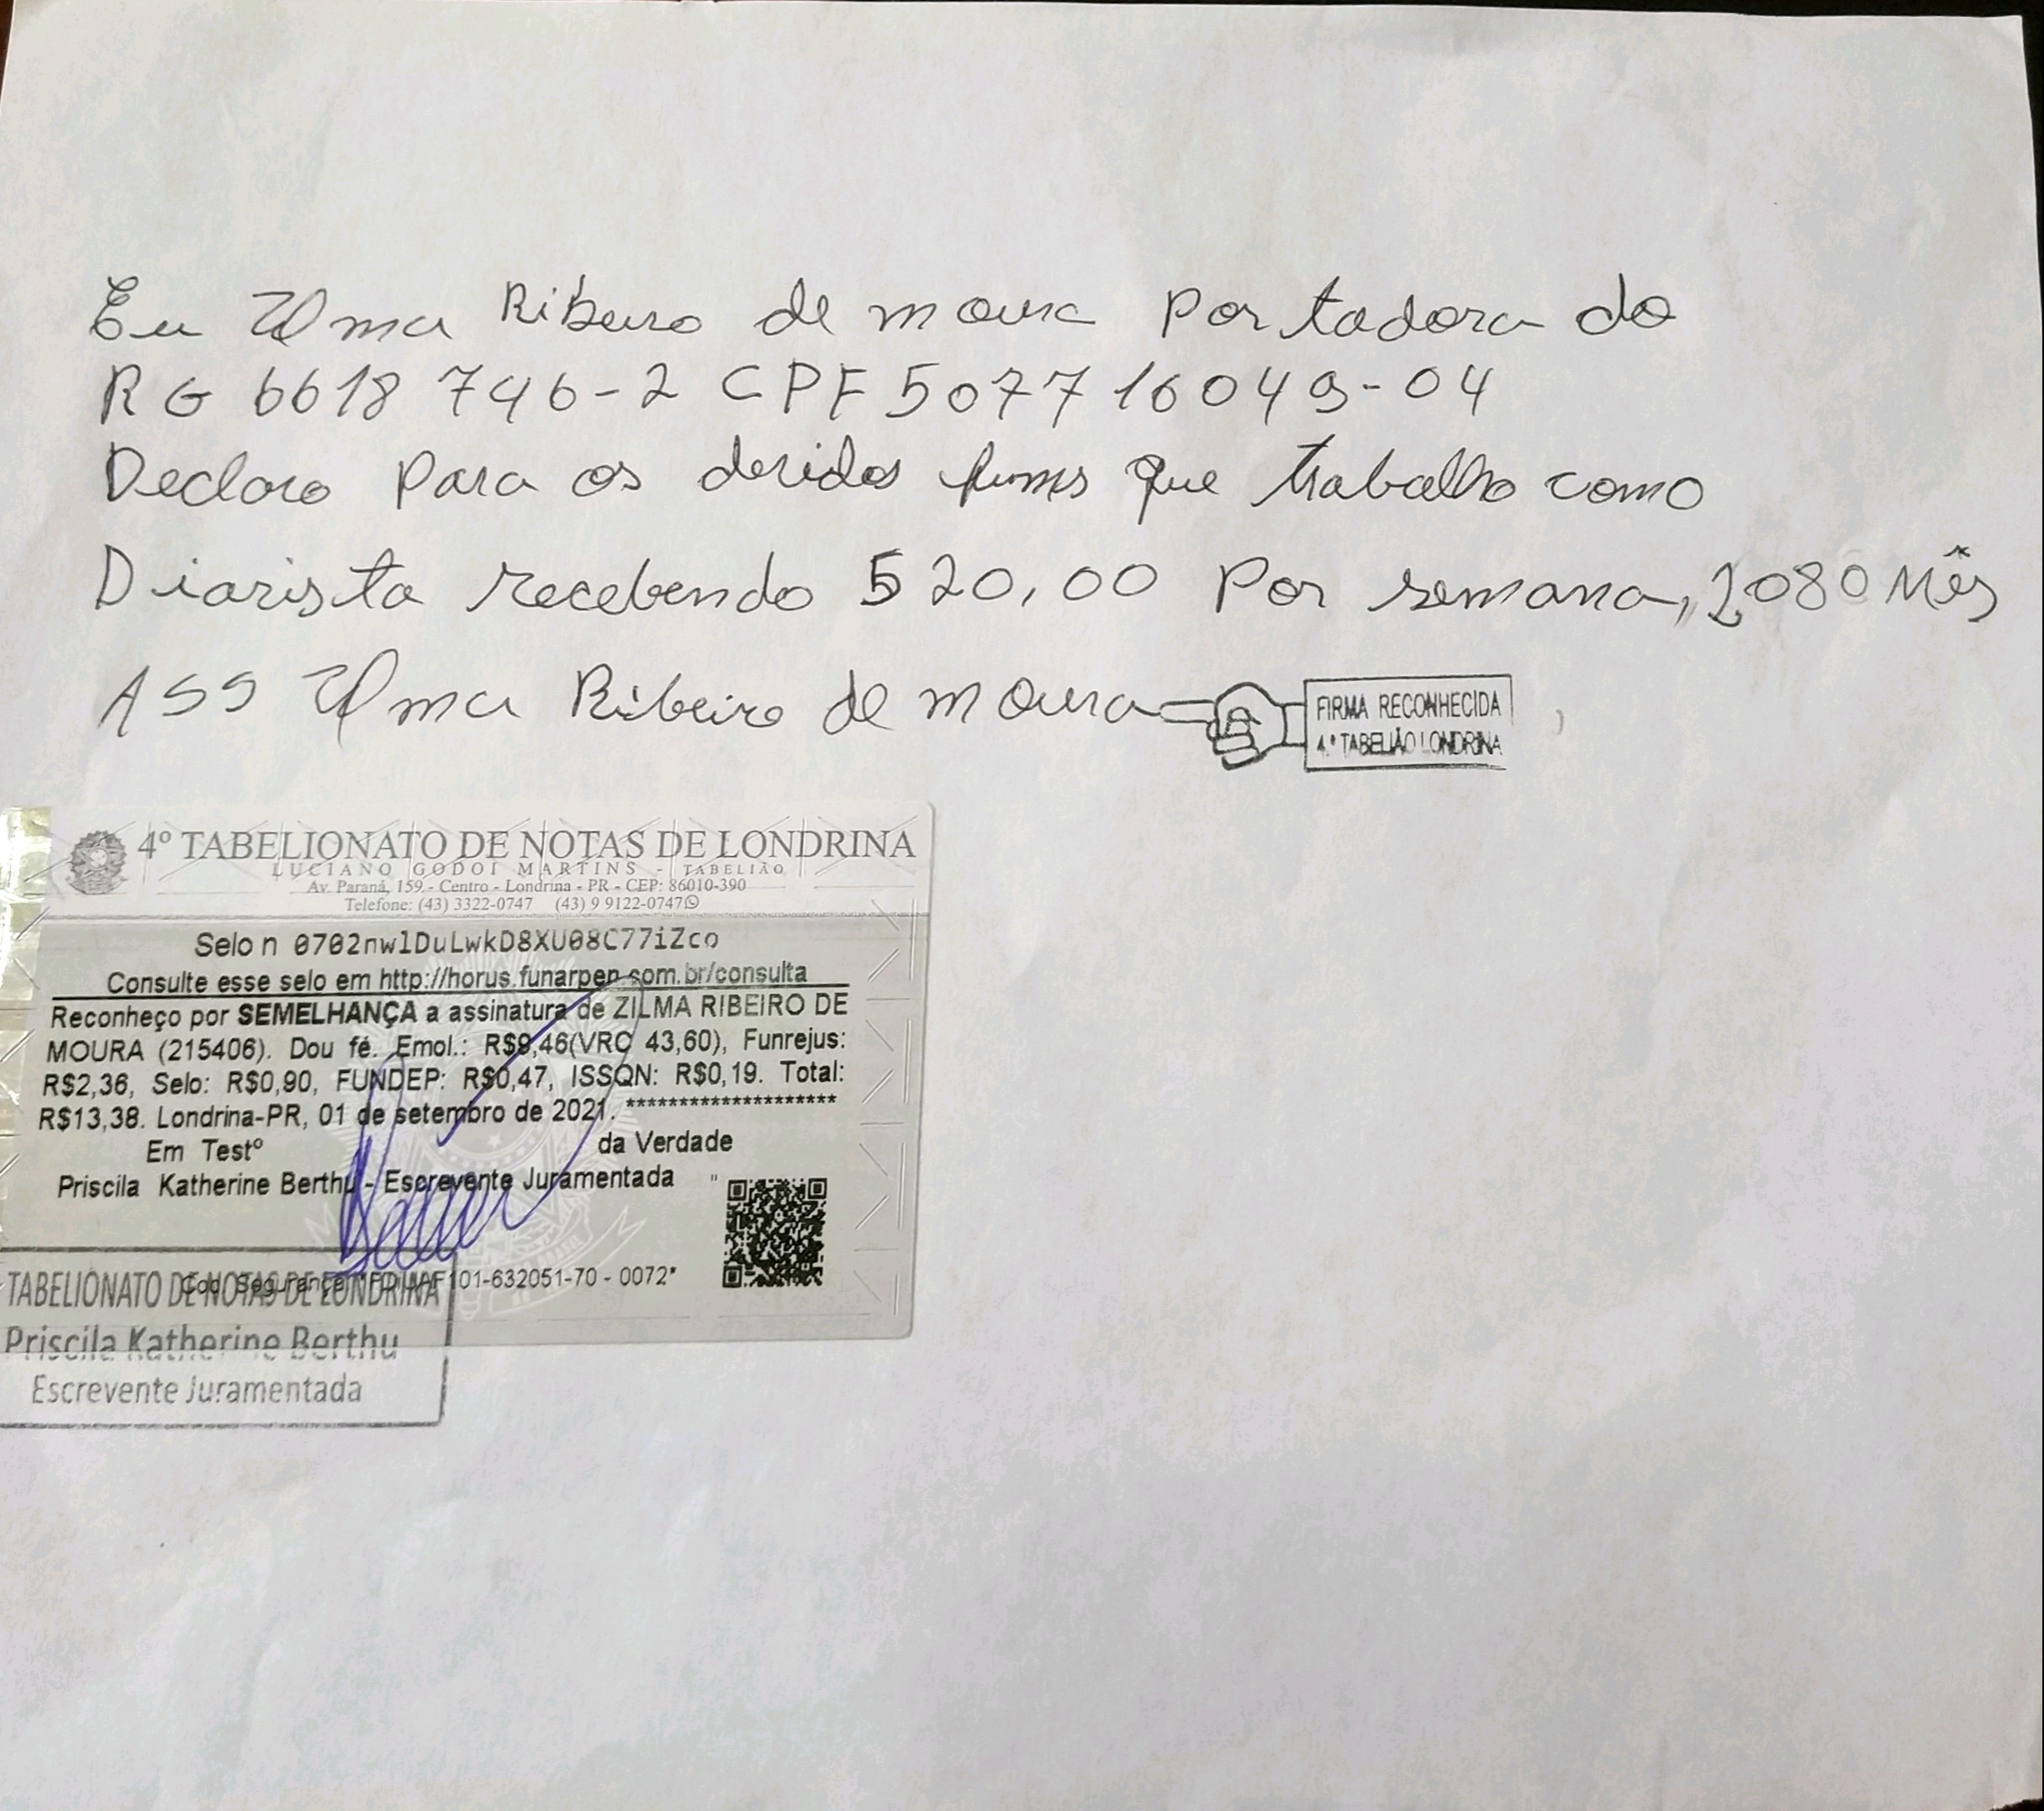 Eu Zilma Ribeiro de moura Portadora do
RG 6618746-2 CPF 507716049-04
Declaro Para os devidos fims que trabalho como
Diarista recebendo 520,00 Por semana, 2080 Mês
ASS Zilma Ribeiro de moura
FIRMA RECONHECIDA
4.º TABELIÃO LONDRINA
4º TABELIONATO DE NOTAS DE LONDRINA
LUCIANO GODOI MARTINS - TABELIÃO
Av. Paraná, 159 - Centro - Londrina - PR - CEP: 86010-390
Telefone: (43) 3322-0747 (43) 9 9122-0747
Selo n 0702nwlDuLwkD8XU08C77iZco
Consulte esse selo em http://horus.funarpen.com.br/consulta
Reconheço por SEMELHANÇA a assinatura de ZILMA RIBEIRO DE
MOURA (215406). Dou fé. Emol.: R$9,46(VRC 43,60), Funrejus:
R$2,36, Selo: R$0,90, FUNDEP: R$0,47, ISSQN: R$0,19. Total:
R$13,38. Londrina-PR, 01 de setembro de 2021. ********************
Em Testº da Verdade
Priscila Katherine Berthu - Escrevente Juramentada
Cod. Segurança 101-632051-70 - 0072*
TABELIONATO DE NOTAS DE LONDRINA
Priscila Katherine Berthu
Escrevente Juramentada